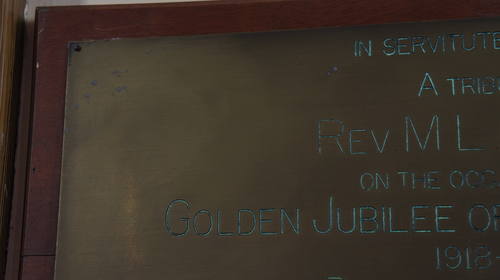 IN SERVITUTE
A TRIB
REV. M L
ON THE OCC
GOLDEN JUBILEE OF
1918